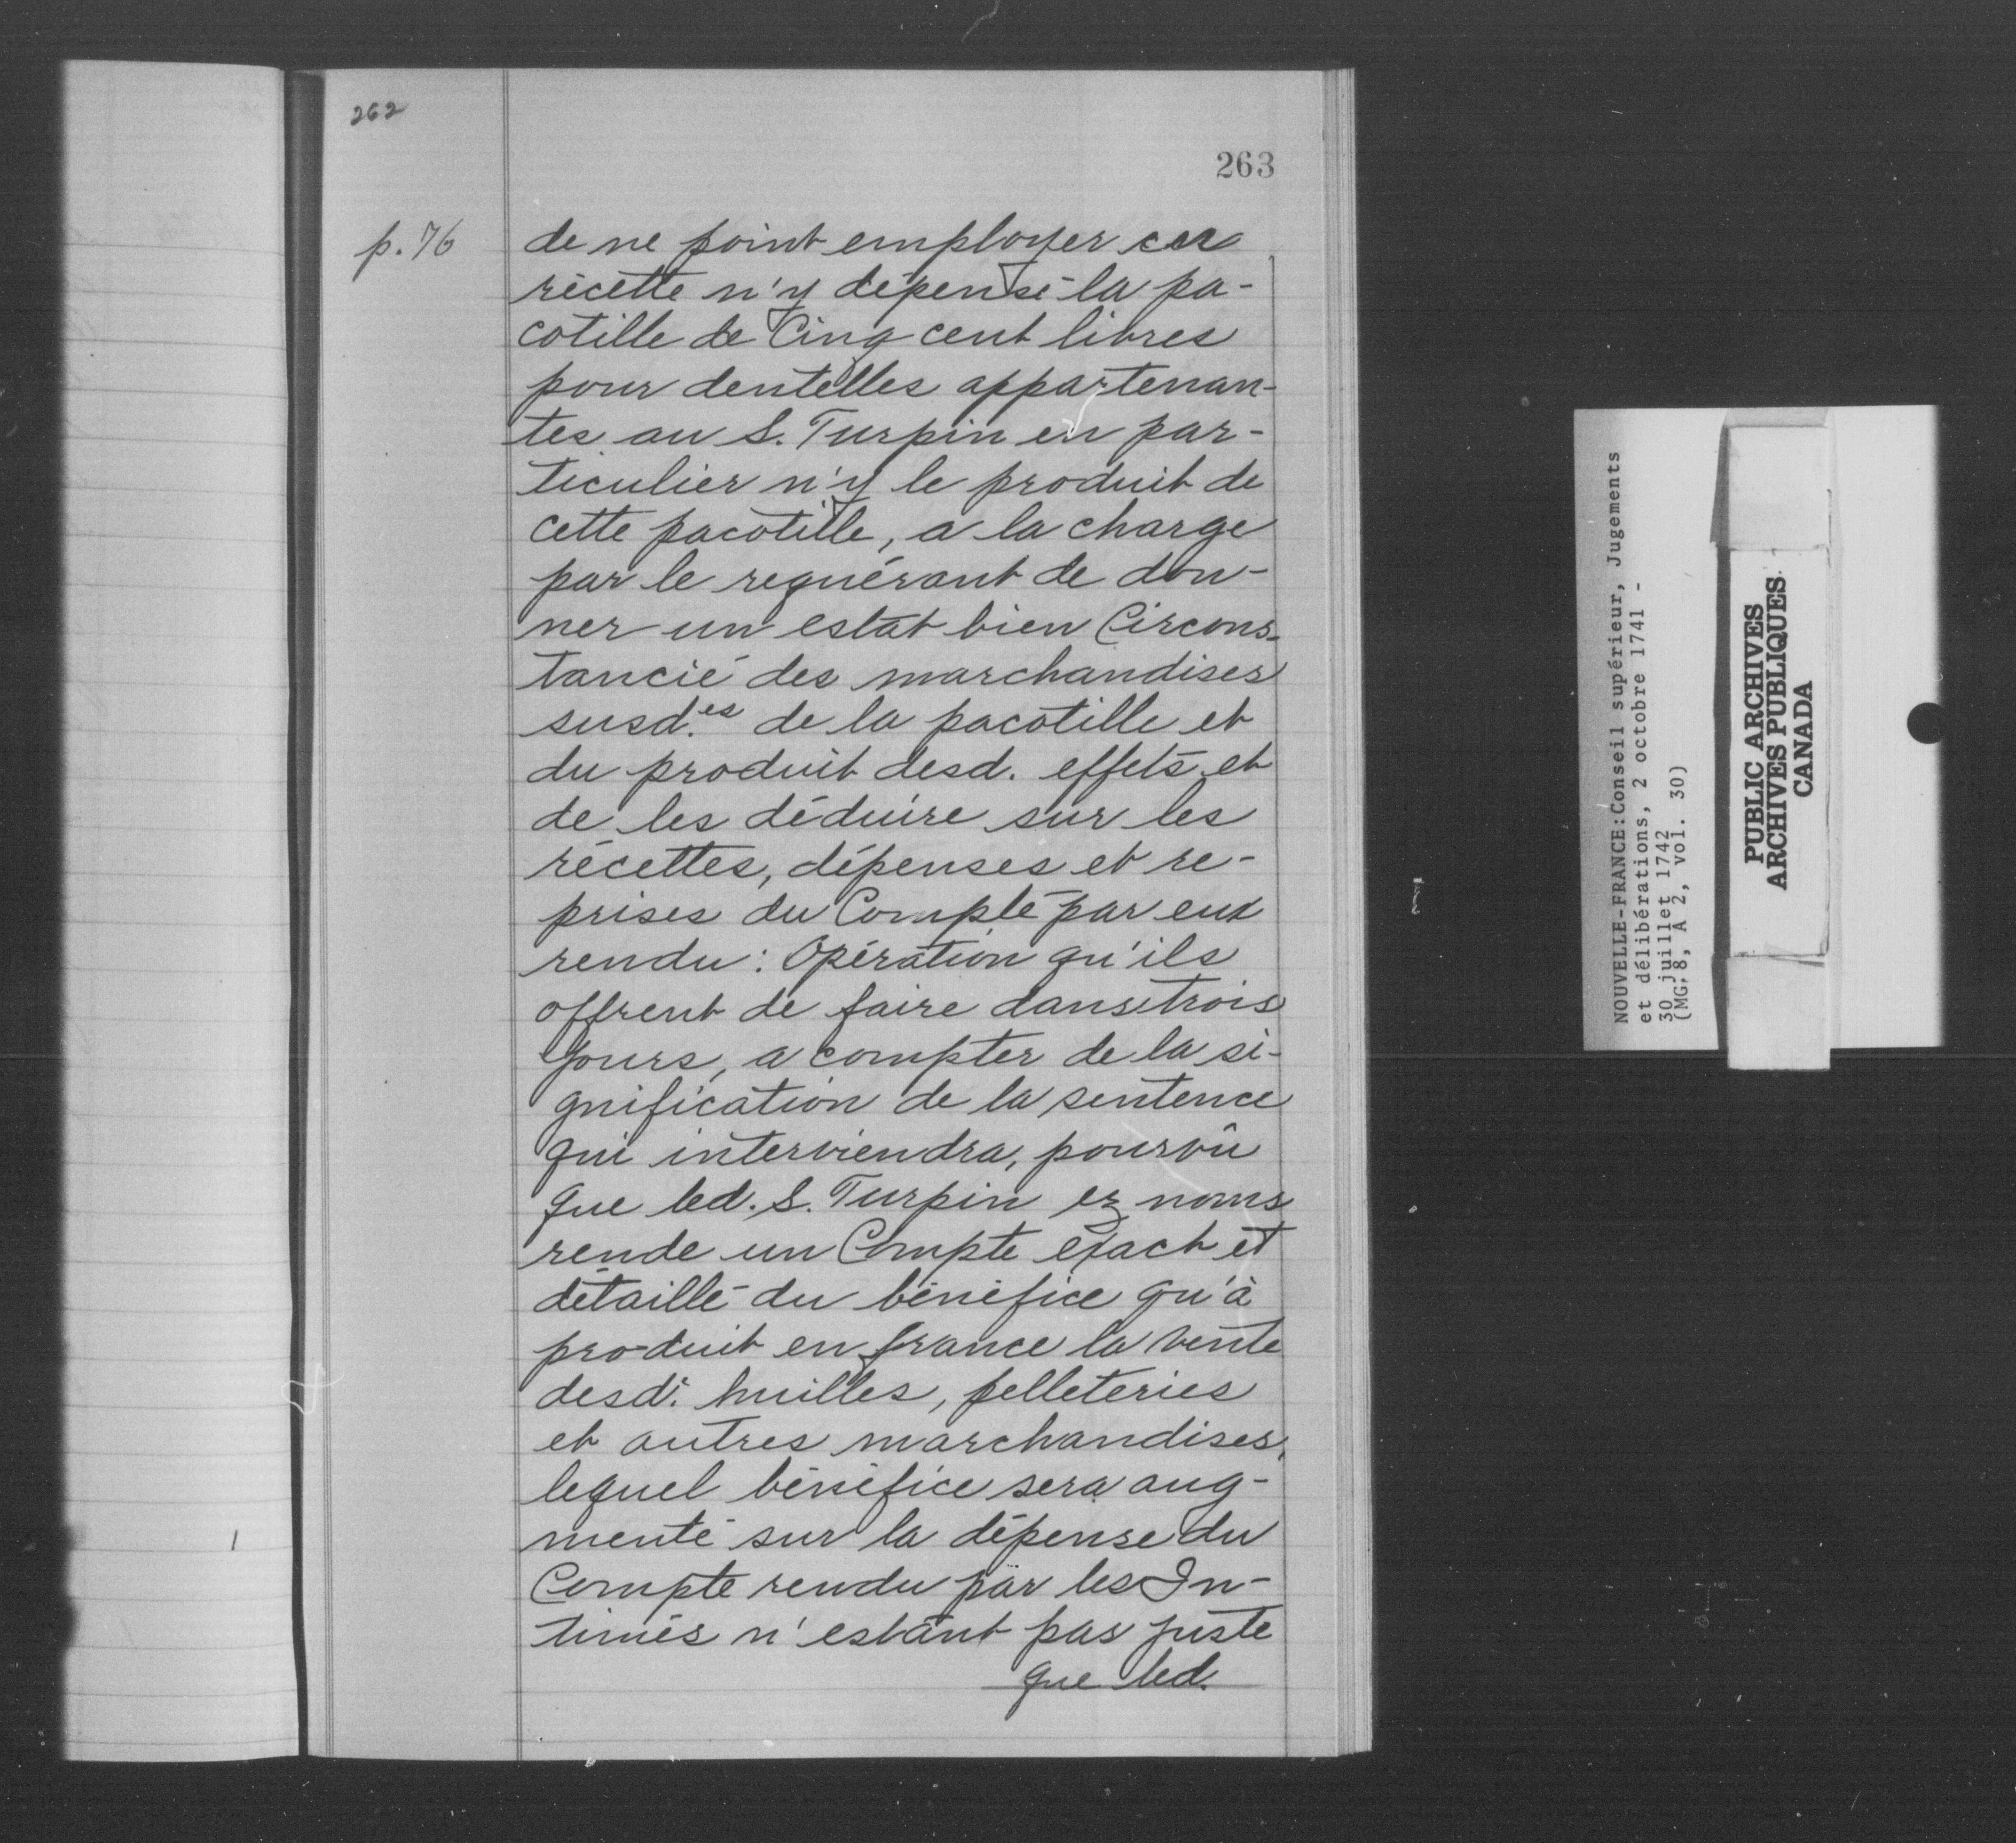 262
263
p. 76
de ne point employer en
récette n'y dépense la pa-
cotille de Cinq cent livres
pour dentelles appartenan-
tes au S. Turpin en par-
ticulier n'y le produit de
cette pacotille, a la charge
par le requérant de don-
ner un estat bien Circons-
tancié des marchandises
susd.es de la pacotille et
du produit desd. effets et
de les déduire sur les
récettes, dépenses et re-
prises du Compte par eux
rendu : Opération qu'ils
offrent de faire dans trois
jours, a compter de la si-
gnification de la sentence
qui interviendra, pourvû
que led. S. Turpin ez noms
rende un Compte exact et
détaillé du bénéfice qu'à
produit en france la vente
desd. huilles, pelleteries
et autres marchandises,
lequel bénéfice sera aug-
menté sur la dépense du
Compte rendu par les In-
timés n'estant pas juste
que led.
NOUVELLE-FRANCE:Conseil supérieur, Jugements
et délibérations, 2 octobre 1741 -
30 juillet 1742
(MG 8, A 2, vol. 30)
PUBLIC ARCHIVES
ARCHIVES PUBLIQUES
CANADA